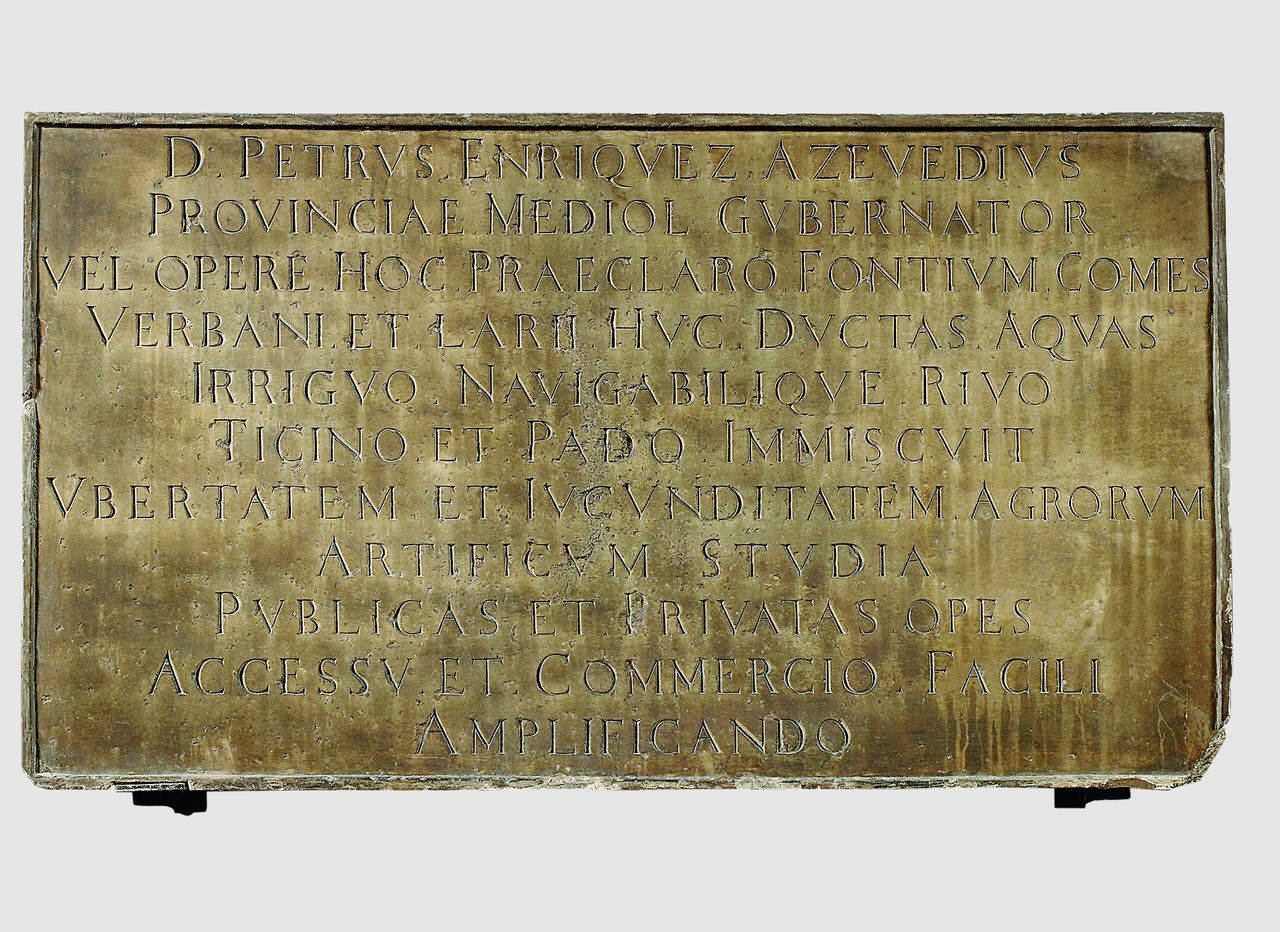 D. PETRVS. ENRIQVEZ. AZEVEDIVS
PROVINCIAE. MEDIOL. GVBERNATOR
VEL. OPERE. HOC. PRAECLARO. FONTIVM. COMES
VERBANI. ET. LARII. HVC. DVCTAS. AQVAS
IRRIGVO. NAVIGABILIQVE. RIVO
TICINO. ET. PADO. IMMISCVIT
VBERTATEM. ET. IVCVNDITATEM. AGRORVM
ARTIFICVM. STVDIA
PVBLICAS. ET. PRIVATAS. OPES
ACCESSV. ET. COMMERCIO. FACILI
AMPLIFICANDO